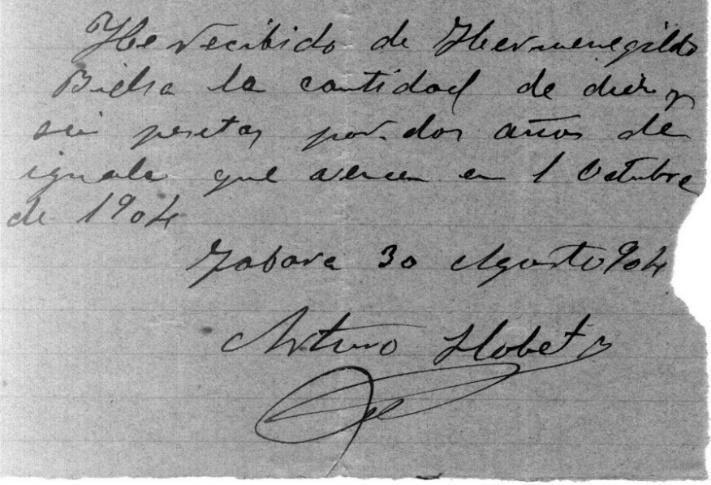 He recibido de Hermenegildo
Bielsa la cantidad de diez y
seis pesetas por dos años de
iguala que vencen en 1 Octubre
de 1904
Fabara 30 Agosto 904
Arturo Llobet